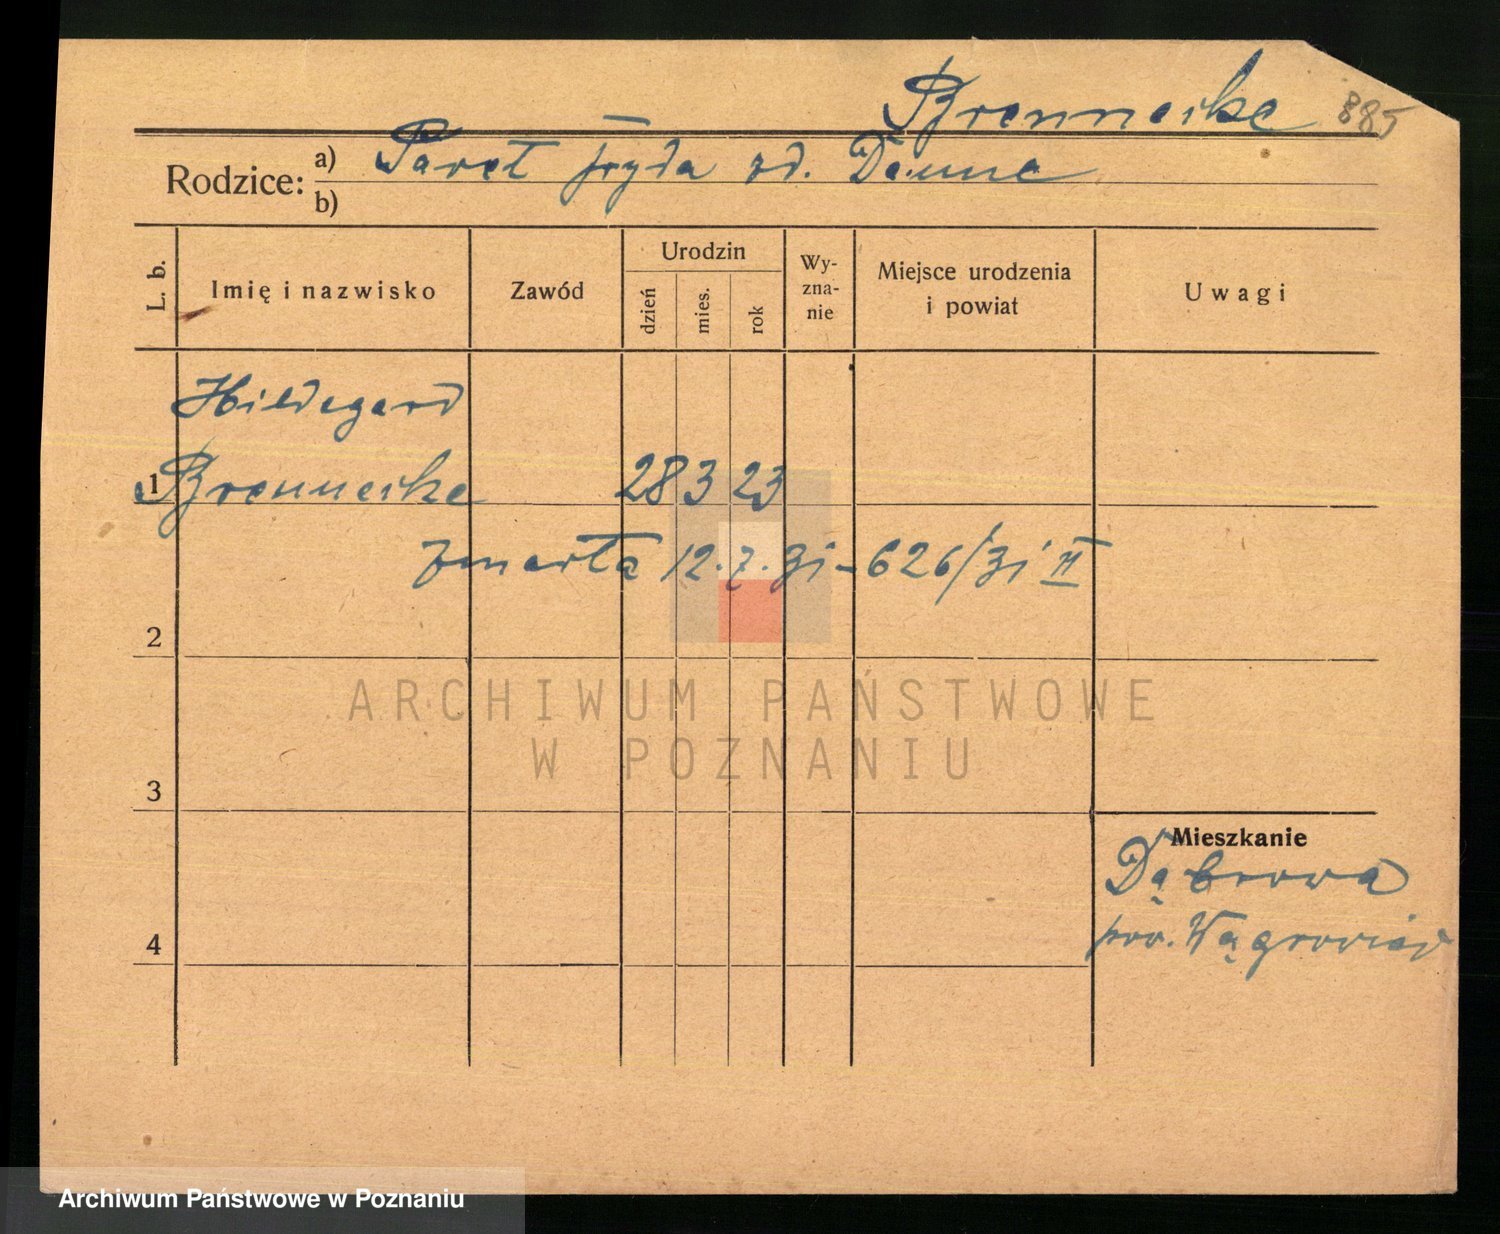 Brennecke 885
Rodzice: a) Paweł Fryda zd. Damme
b)
L. b. Imię i nazwisko Zawód Urodzin dzień mies. rok Wyznanie Miejsce urodzenia i powiat Uwagi
Hildegard
1 Brennecke 28 3 23
zmarła 12. 7. 31 - 626/31 II
2
3
Mieszkanie
Dąbrowa
4 pow. Wągrowiec
ARCHIWUM PAŃSTWOWE
W POZNANIU
Archiwum Państwowe w Poznaniu